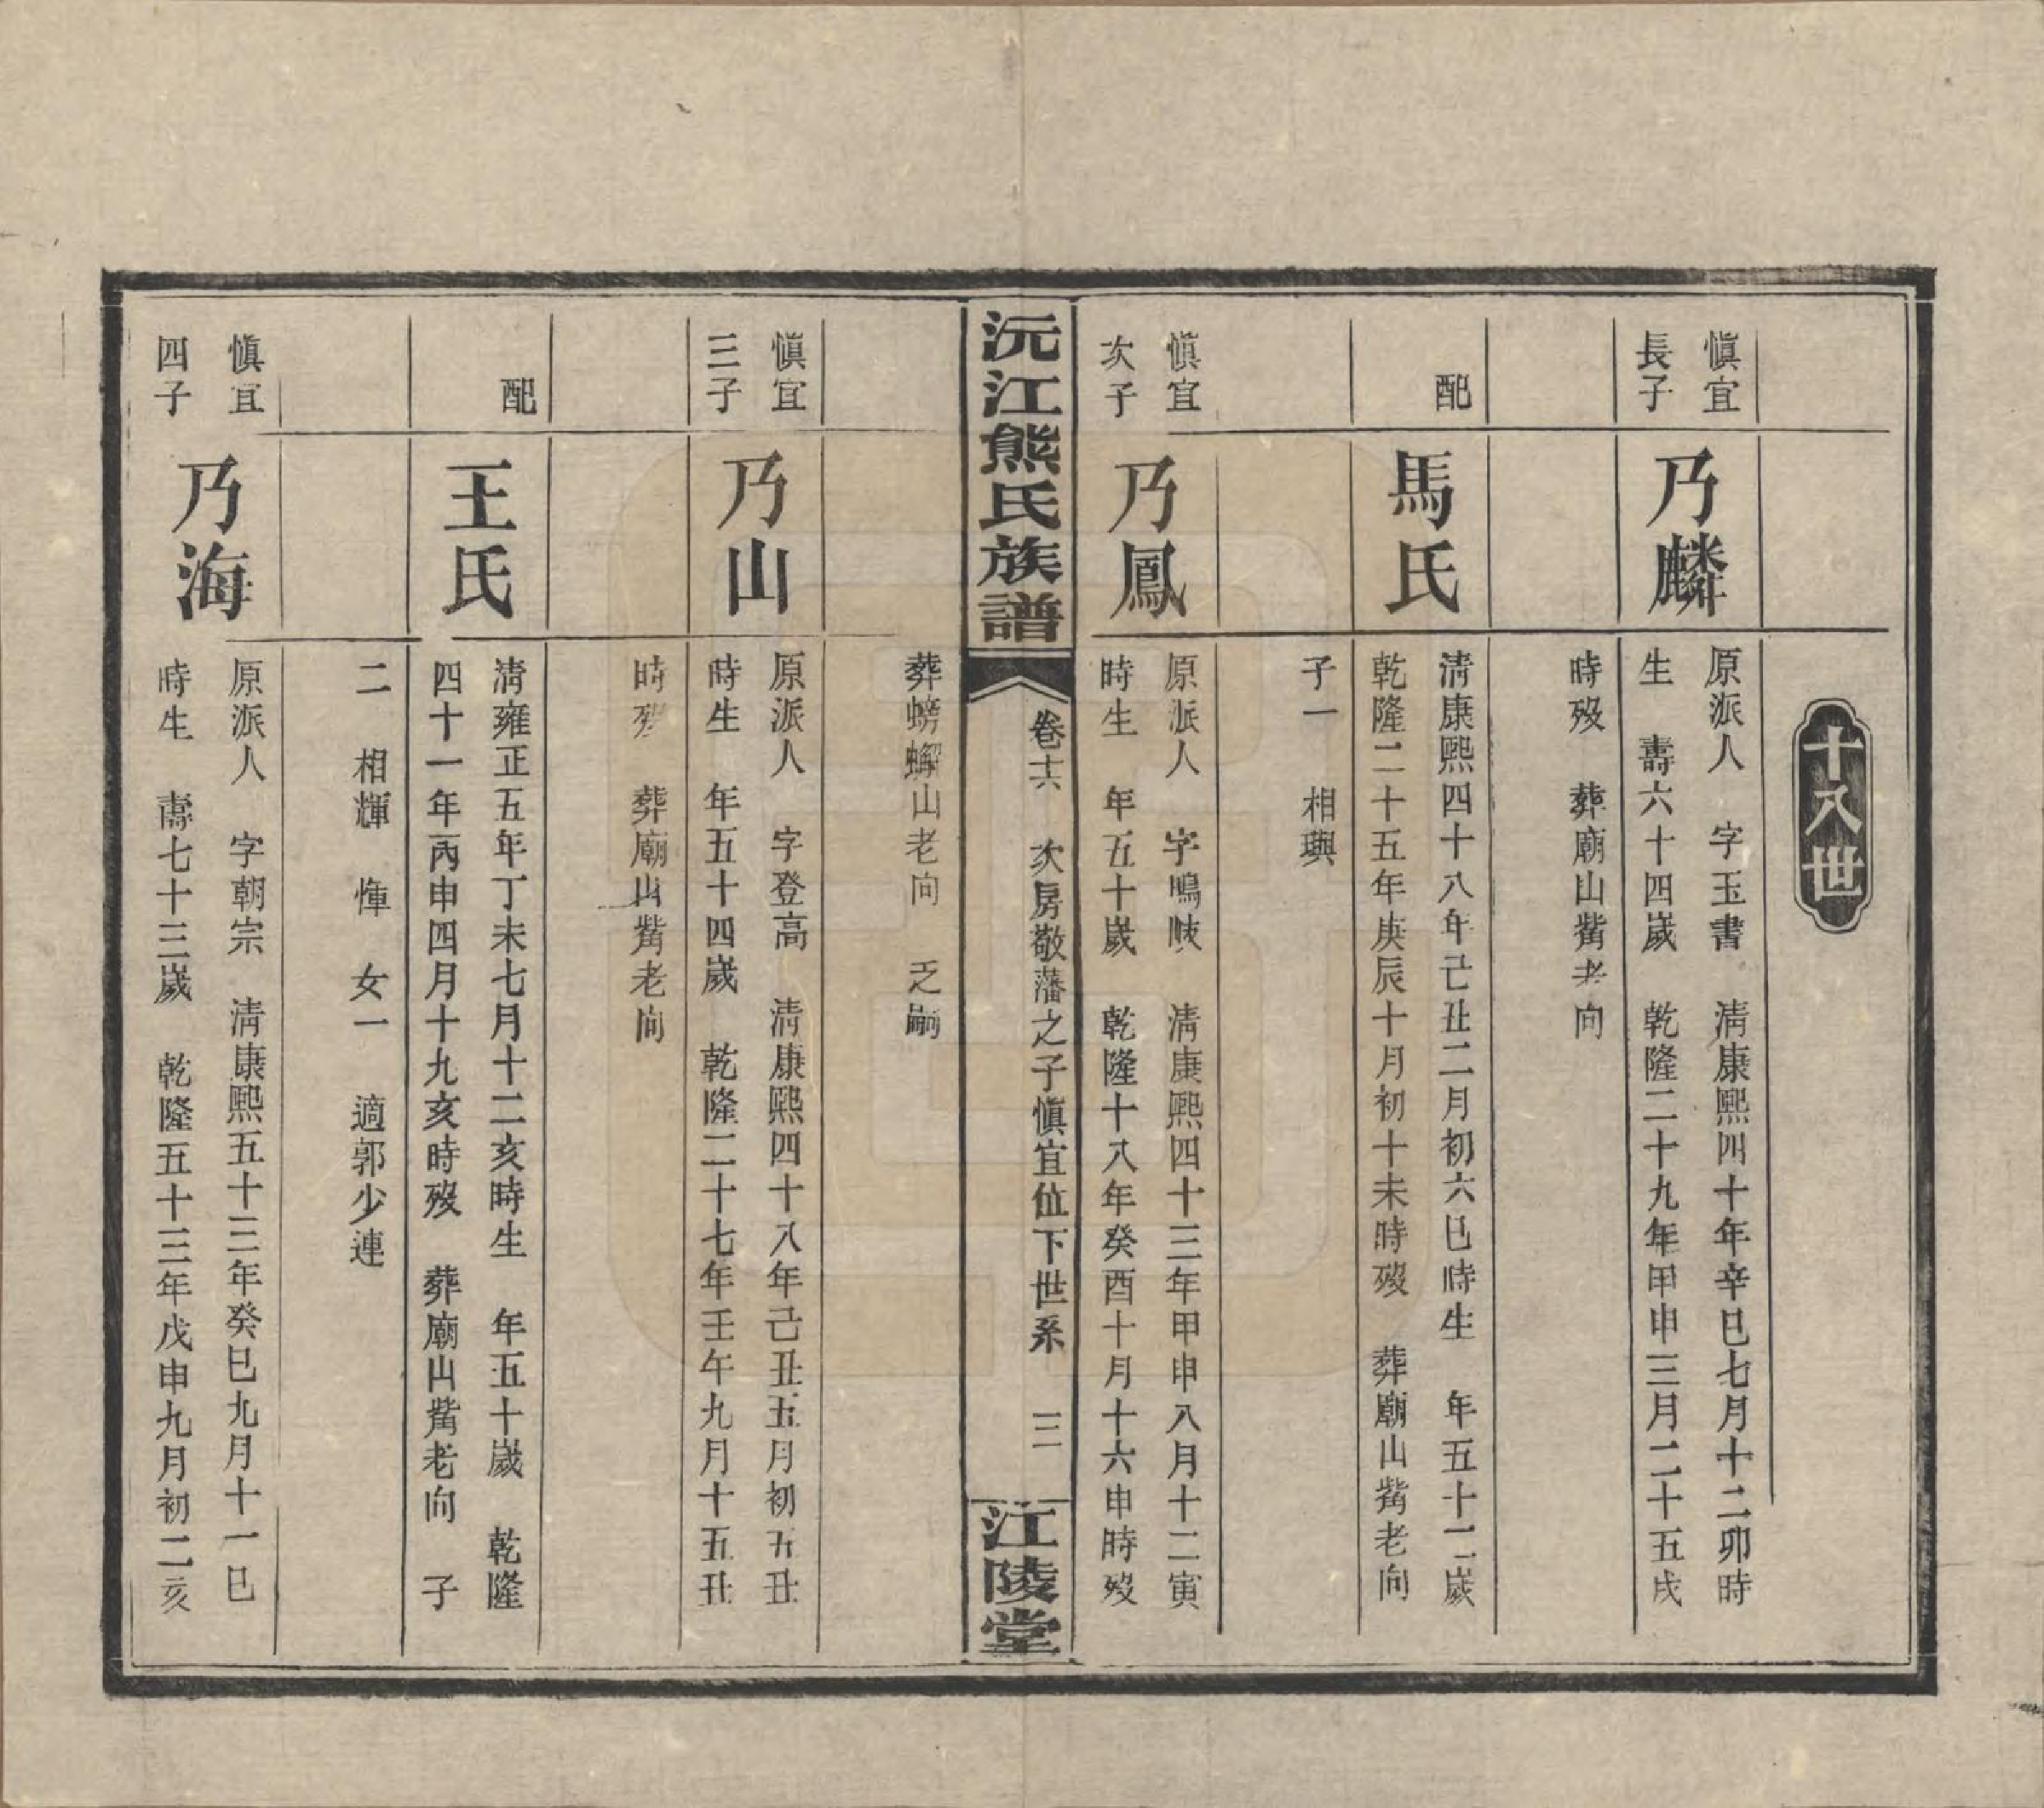 十八世
慎宜
長子
乃麟
原派人　字玉書　淸康熙四十年辛巳七月十二卯時
生　壽六十四歲　乾隆二十九年甲申三月二十五戌
時歿　葬廟山觜老向
配
馬氏
淸康熙四十八年己丑二月初六巳時生　年五十二歲
乾隆二十五年庚辰十月初十未時歿　葬廟山觜老向
子一　相璵
慎宜
次子
乃鳳
原派人　字鳴岐　淸康熙四十三年甲申八月十二寅
時生　年五十歲　乾隆十八年癸酉十月十六申時歿
沅江熊氏族譜
卷十六　次房敬藩之子慎宜位下世系　三
江陵堂
葬螃蠏山老向　乏嗣
慎宜
三子
乃山
原派人　字登高　淸康熙四十八年己丑五月初五丑
時生　年五十四歲　乾隆二十七年壬午九月十五丑
時歿　葬廟山觜老向
配
王氏
淸雍正五年丁未七月十二亥時生　年五十歲　乾隆
四十一年丙申四月十九亥時歿　葬廟山觜老向　子
二　相輝　惲　女一　適郭少連
慎宜
四子
乃海
原派人　字朝宗　淸康熙五十三年癸巳九月十一巳
時生　壽七十三歲　乾隆五十三年戊申九月初二亥